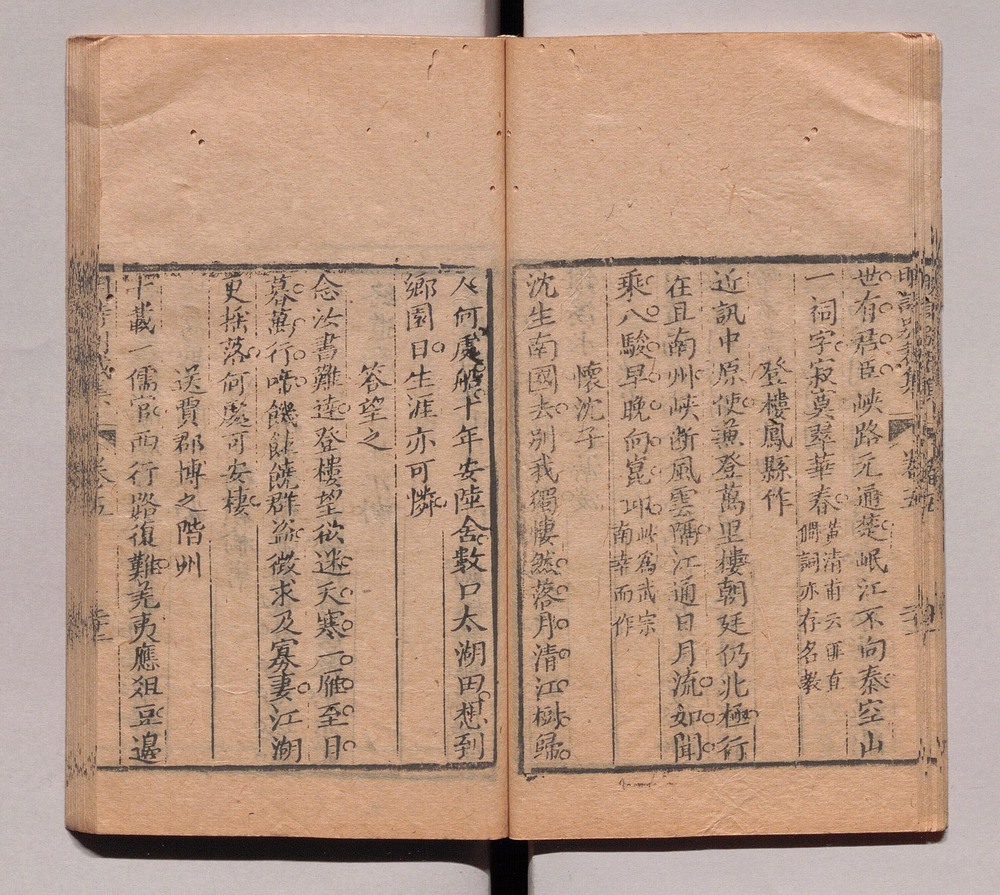 世有君臣峽路元通楚岷江不向秦空山
一祠宇寂寞翠華春 黃清甫云匪直
調詞亦存名教
登樓鳳縣作
近訊中原使兼登萬里樓朝廷仍北極行
在且南州峽斷風雲隔江通日月流如聞
乘八駿早晚向崑丘 此爲武宗
南幸而作
懷沈子
沈生南國去別我獨悽然落月清江樹歸
人何處船十年安陸舍數口太湖田想到
鄉園日生涯亦可憐
答望之
念汝書難達登樓望欲迷天寒一雁至日
暮萬行啼饑饉饒群盜徵求及寡妻江湖
更搖落何處可安棲
送賈郡博之階州
十載一儒官西行路復難羌夷應俎豆邊